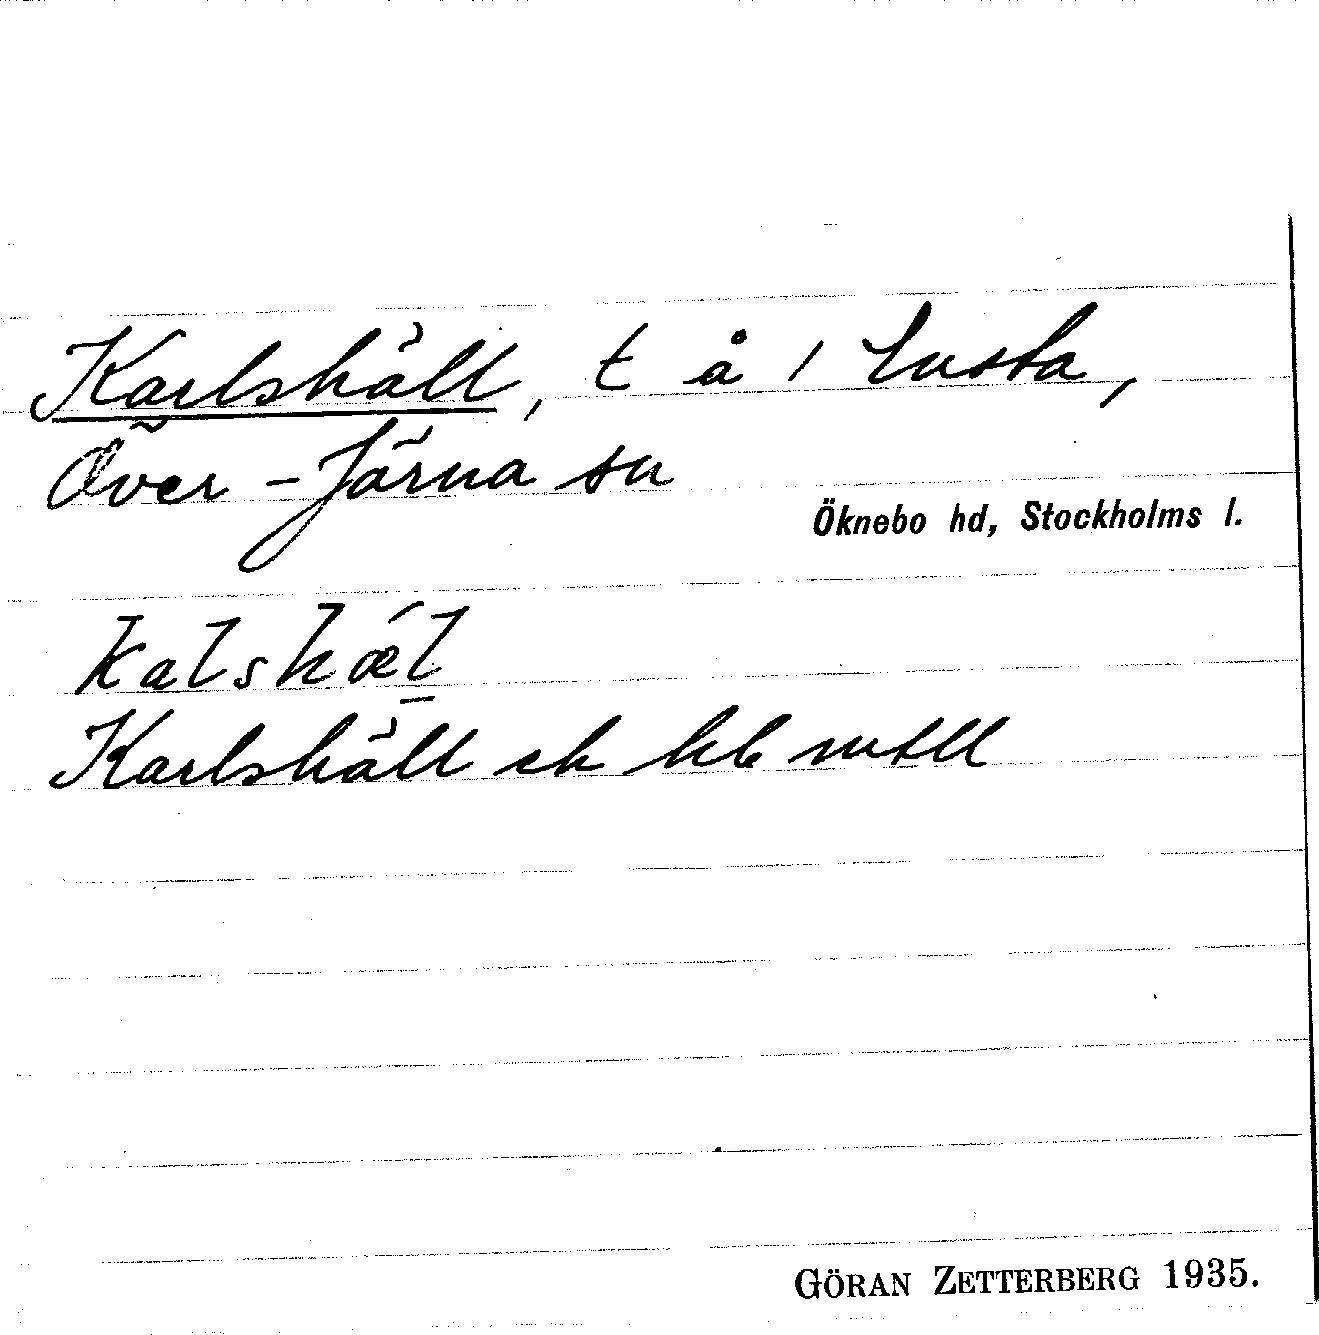 Karlshäll, t å 1 Lusta,
Över-Järna sn
Öknebo hd, Stockholms l.
kalshǽl̠
Karlshäll ek hb
GÖRAN ZETTERBERG 1935.